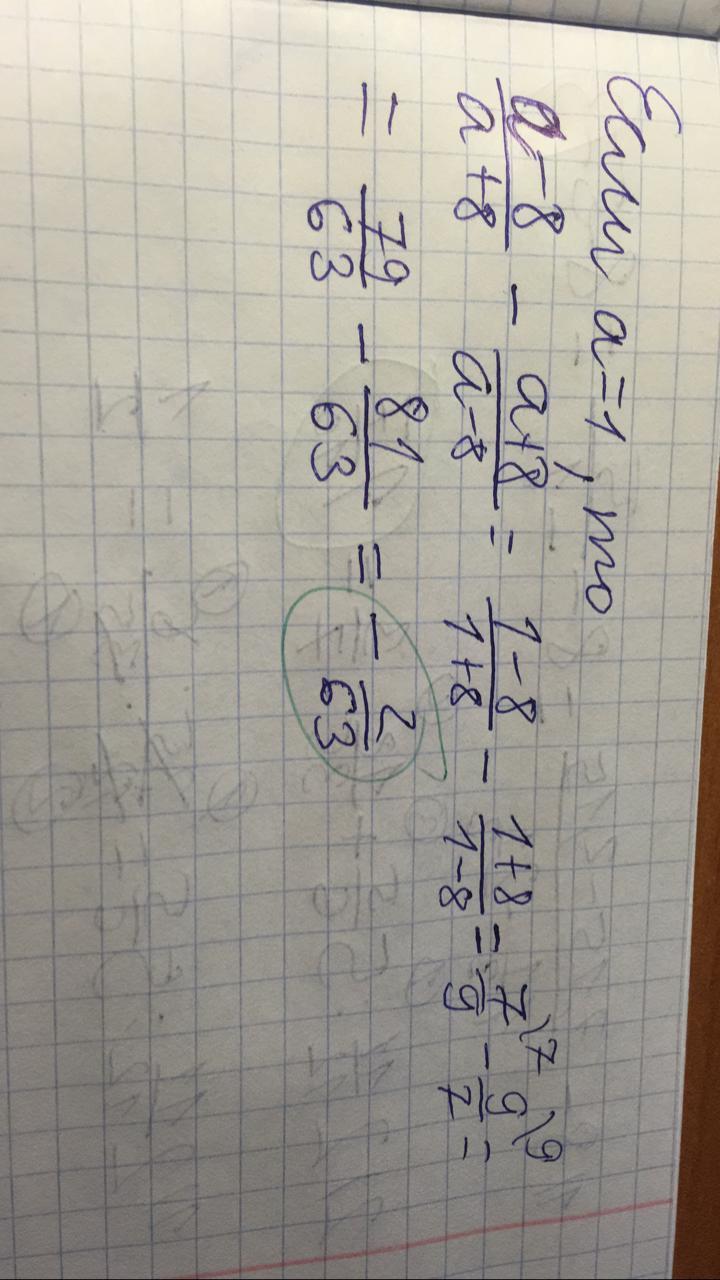 Если a=1, то
a-8/a+8 - a+8/a-8 = 1-8/1+8 - 1+8/1-8 = 7\7/9 - 9\9/7 =
= 79/63 - 81/63 = - 2/63